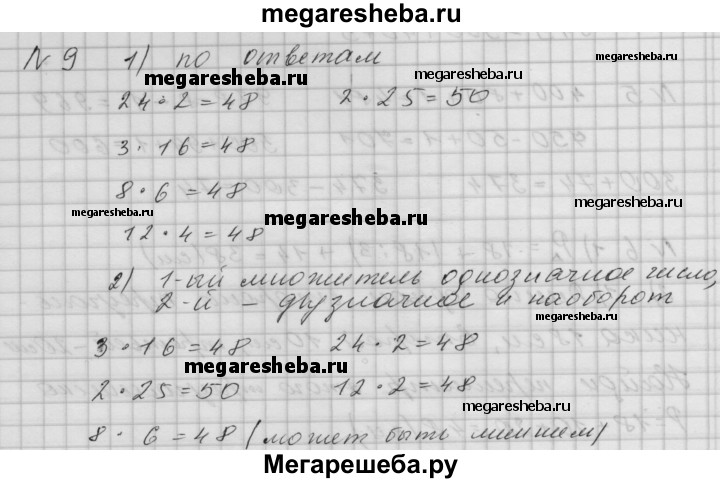 megaresheba.ru
№ 9 1) по ответам
megaresheba.ru megaresheba.ru megaresheba.ru
24 · 2 = 48 2 · 25 = 50
3 · 16 = 48
8 · 6 = 48
megaresheba.ru megaresheba.ru megaresheba.ru
12 · 4 = 48
2) 1-ый множитель однозначное число,
2-й – двузначное и наоборот
megaresheba.ru
3 · 16 = 48 24 · 2 = 48
megaresheba.ru
2 · 25 = 50 12 · 2 = 48
megaresheba.ru
8 · 6 = 48 (может быть лишнем)
Мегарешеба.ру